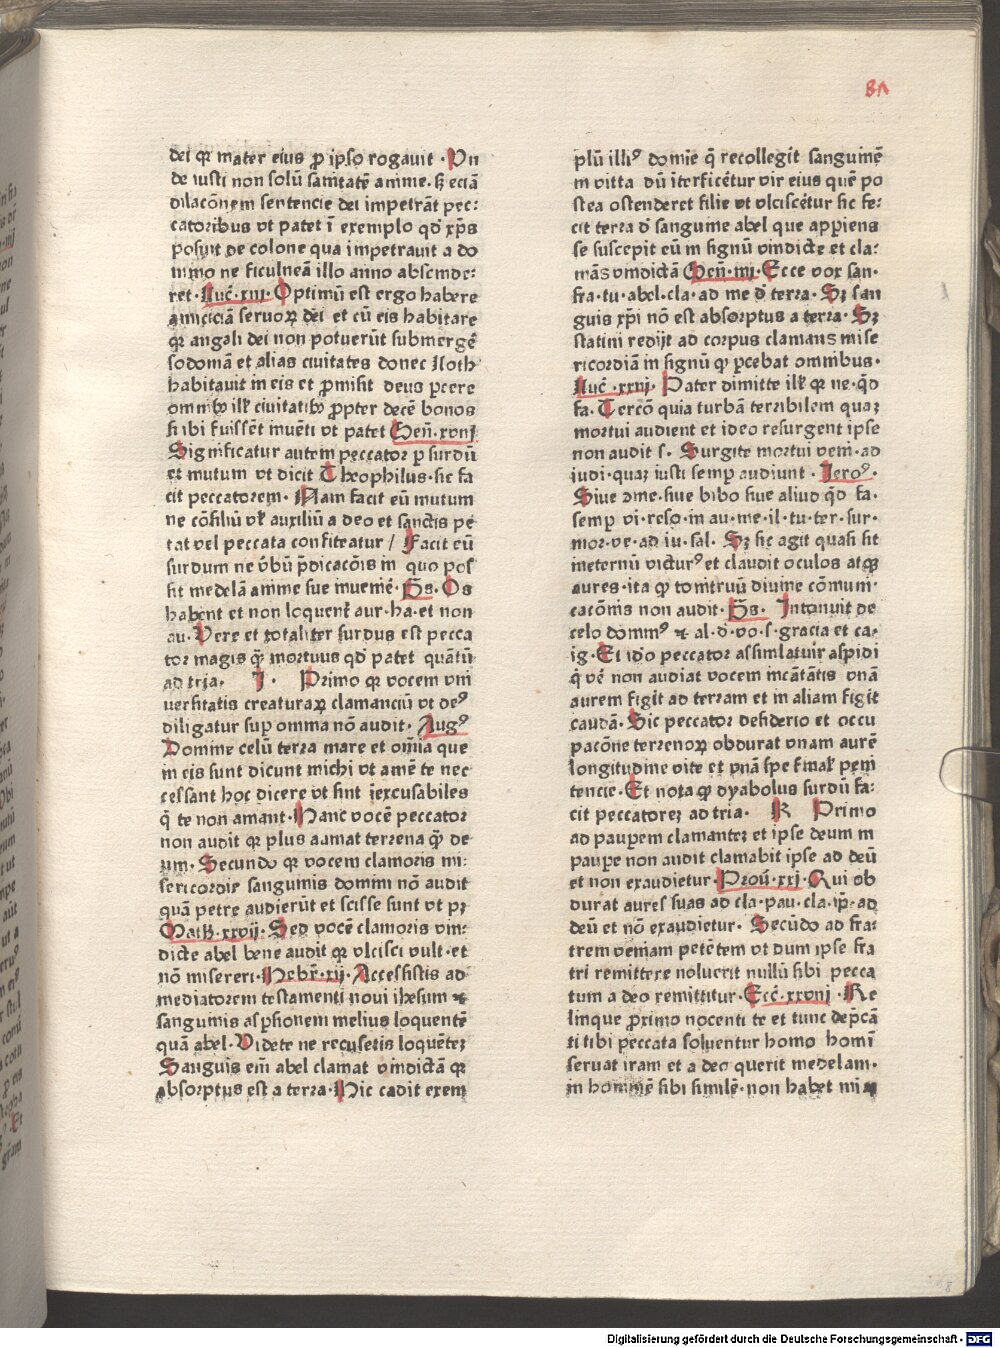 81
dei qr mater eius ꝓ ipso rogauit · Vn
de iusti non solū sanitatē anime. sꝫ eciā
dilacōnem sentencie dei impetrāt pec⸗
catoribus vt patet ī exemplo qd xp̄s
posuit de colone qua impetrauit a do
mino ne ficulneā illo anno abscinde⸗
ret · Luc̄ · xiij · Optimū est ergo habere
amiciciā seruoꝝ dei et cū eis habitare
qr angeli dei non potuerūt submergē
sodomā et alias ciuitates donec Loth
habitauit in eis et ꝓmisit deus ꝑcere
omnibꝫ illꝭ ciuitatibꝫ ꝓpter decē bonos
si ibi fuissēt inuēti vt patet Gen̄ · xviij
Significatur autem peccator ꝑ surdū
et mutum vt dicit Theophilus · sic fa
cit peccatorem · Nam facit eū mutum
ne cōsiliū vꝉ auxiliū a deo et sanctis pe
tat vel peccata confiteatur / Facit eū
surdum ne v̄bū p̄dicacōis in quo pos
sit medelā anime sue inueniē · P̄s. Os
habent et non loquent̄ aur · ha · et non
au · Vere et totaliter surdus est pecca
tor magis q̄ꝫ mortuus qd patet quātū
ad tria. I · Primo qr vocem vni
uersitatis creaturaꝝ clamanciū vt deꝰ
diligatur suꝑ omnia nō audit · Augꝰ
Domine celū terra mare et om̄ia que
in eis sunt dicunt michi vt amē te nec
cessant hoc dicere vt sint īexcusabiles
q̄ te non amant · Hanc vocē peccator
non audit qr plus amat terrena q̄ꝫ de
um · Secundo qr vocem clamoris mi⸗
sericordie sanguinis domini nō audit
quā petre audierūt et scisse sunt vt pꝫ
Math̄ · xxvij · Sed vocē clamoris vin⸗
dicte abel bene audit qr vlcisci vult · et
nō misereri · Hebr̄ · xij · Accessistis ad
mediatorem testamenti noui ihesum ⁊
sanguinis aspersionem melius loquentē
quā abel · Videte ne recusetis loquēteꝫ
Sanguis em̄ abel clamat vindictā qr
absorptus est a terra · Hic cadit exem
plū illiꝰ domine q̄ recollegit sanguinē
in vitta dū īterficētur vir eius quē po
stea ostenderet filie vt vlciscētur sic fe⸗
cit terra d̄ sanguine abel que apperiens
se suscepit eū in signū vindicte et cla⸗
māns vindictā Gen̄ · iiij · Ecce vox san ·
fra · tu · abel · cla · ad me d̄ terra · Sꝫ san
guis xp̄i nō est absorptus a terra · Sꝫ
statim redijt ad corpus clamans mise
ricordiā in signū qꝫ ꝑcebat omnibus ·
Luc̄ · xxiij · Pater dimitte illꝭ qr ne · q̄d
fa. Tercō quia turbā terribilem quaꝫ
mortui audient et ideo resurgent ipse
non audit s · Surgite mortui veni · ad
iudi · quaꝫ iusti semꝑ audiunt · Ieroꝰ ·
Siue ꝯme · siue bibo siue aliud q̄d fa ·
semꝑ vi · reso · in au · me · il · tu · ter · sur ·
mor · ve · ad iu · sal · Sꝫ sic agit quasi sit
ineternū victurꝰ et claudit oculos atqꝫ
aures · ita qꝫ tonitruū diuine cōmuni⸗
cacōnis non audit · P̄s. Intonuit de
celo dominꝰ ⁊ al · d · vo · s · gracia et ca ·
ig · Et ideo peccator assimilatur aspidi
q̄ vē non audiat vocem incātātis vnā
aurem figit ad terram et in aliam figit
caudā · Sic peccator desiderio et occu
pacōne terrenoꝝ obdurat vnam aurē
longitudine vite et vnā spe finalꝭ peni
tencie · Et nota qꝫ dyabolus surdū fa⸗
cit peccatoreꝫ ad tria · R Primo
ad pauꝑem clamanteꝫ et ipse deum in
pauꝑe non audit clamabit ipse ad deū
et non exaudietur · Prou̅ · xxj · Qui ob
durat aures suas ad cla · pau · cla · ip̄e · ad
deū et nō exaudietur · Secūdo ad fra⸗
trem veniam petētem vt dum ipse fra
tri remittere noluerit nullū sibi pecca
tum a deo remittitur · Ecc̄ · xxviij · Re
linque ꝓximo nocenti te et tunc dep̄cā
ti tibi peccata soluentur homo homī
seruat iram et a deo querit medelam ·
in hominē sibi similē · non habet miā
Digitalisierung gefördert durch die Deutsche Forschungsgemeinschaft - DFG